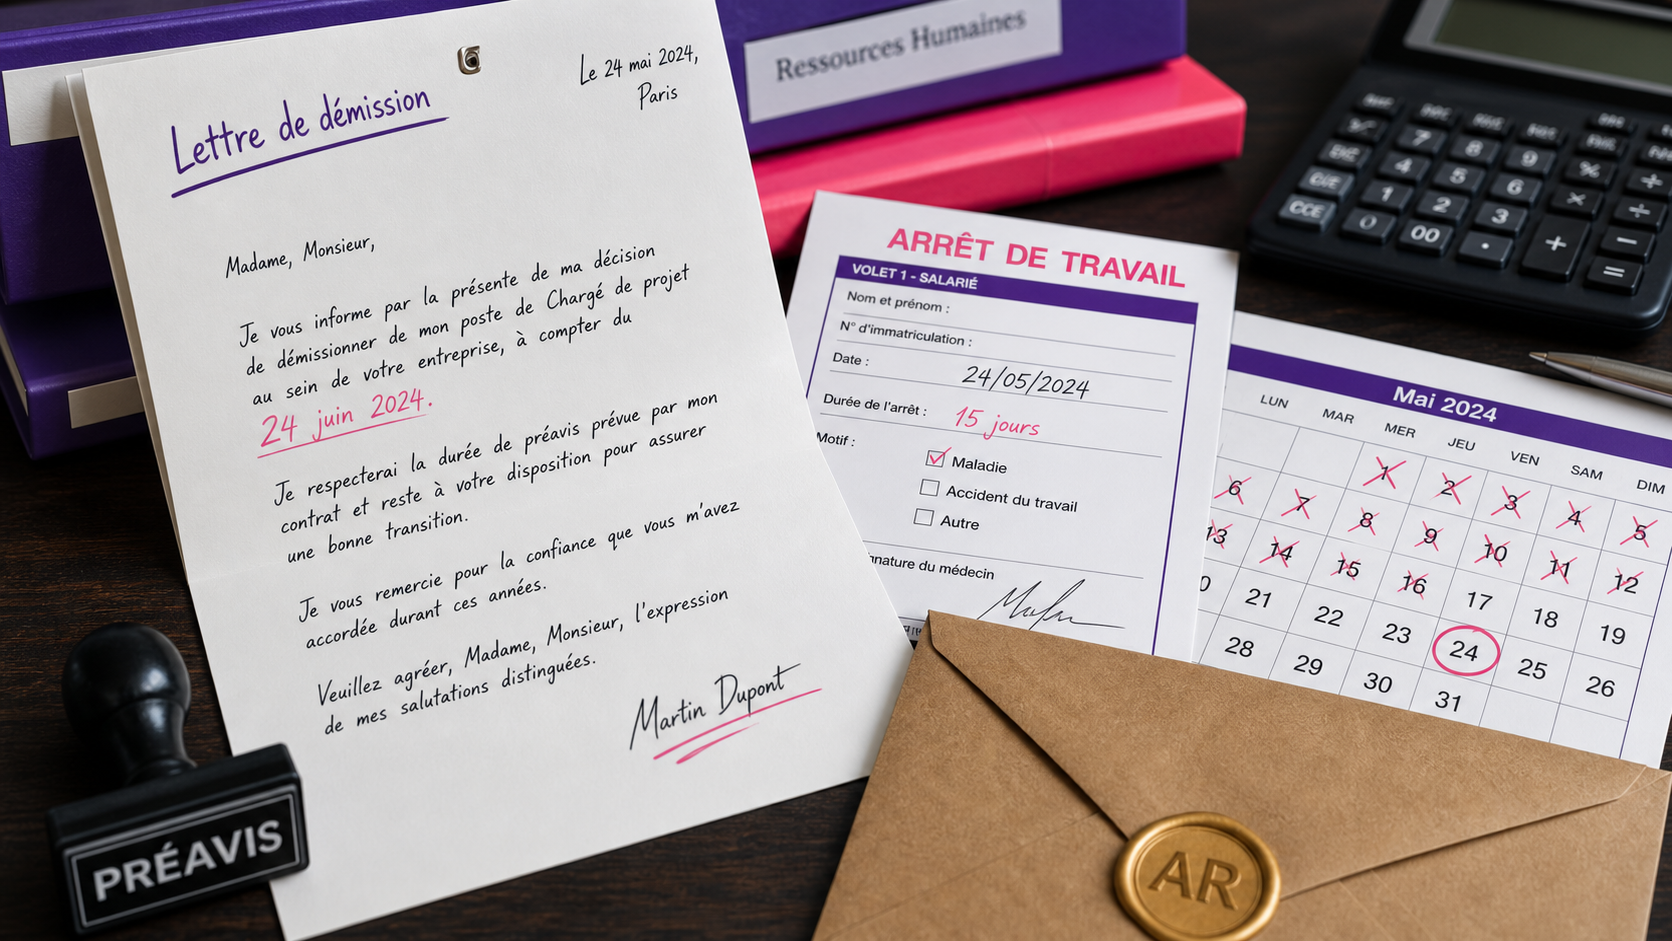 Lettre de démission
Le 24 mai 2024,
Paris
Madame, Monsieur,
Je vous informe par la présente de ma décision
de démissionner de mon poste de Chargé de projet
au sein de votre entreprise, à compter du
24 juin 2024.
Je respecterai la durée de préavis prévue par mon
contrat et reste à votre disposition pour assurer
une bonne transition.
Je vous remercie pour la confiance que vous m'avez
accordée durant ces années.
Veuillez agréer, Madame, Monsieur, l'expression
de mes salutations distinguées.
Martin Dupont
PRÉAVIS
Ressources Humaines
ARRÊT DE TRAVAIL
VOLET 1 - SALARIÉ
Nom et prénom :
N° d'immatriculation :
Date : 24/05/2024
Durée de l'arrêt : 15 jours
Motif :
Maladie
Accident du travail
Autre
gnature du médecin
Mai 2024
LUN MAR MER JEU VEN SAM DIM
1 2 3 4 5
6 7 8 9 10 11 12
13 14 15 16 17 18 19
0 21 22 23 24 25 26
28 29 30 31
AR
7 8 9 %
4 5 6 ×
1 2 3 +
0 00 . =
CCE